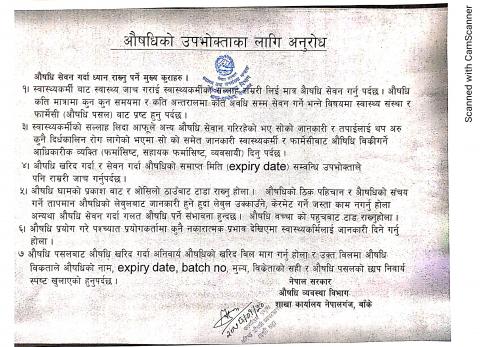 औषधिको उपभोक्ताका लागि अनुरोध
औषधि सेवन गर्दा ध्यान राख्नु पर्ने मुख्य कुराहरु ।
१। स्वास्थ्यकर्मी बाट स्वास्थ्य जाच गराई स्वास्थ्यकर्मीको सल्लाह राम्ररी लिई मात्र औषधि सेवन गर्नु पर्दछ । औषधि
कति मात्रामा कुन कुन समयमा र कति अन्तरालमा कति अवधि सम्म सेवन गर्ने भन्ने विषयमा स्वास्थ्य संस्था र
फार्मेसी (औषधि पसल) बाट प्रष्ट हुनु पर्दछ ।
३। स्वास्थ्यकर्मीको सल्लाह लिदा आफूले अन्य औषधि सेवान गरिरहेको भए सोको जानकारी र तपाईलाई थप अरु
कुनै दिर्घकालिन रोग लागेको भएमा सो को समेत जानकारी स्वास्थ्यकर्मी र फार्मेसीबाट औषधि विकीगर्ने
आधिकारीक व्यक्ति (फर्मासिष्ट, सहायक फर्मासिष्ट, व्यवसायी) दिनु पर्दछ ।
४। औषधि खरिद गर्दा र सेवन गर्दा औषधिको समाप्त मिति (expiry date) सम्वन्धि उपभोक्ताले
पनि राम्ररी जाच गर्नुपर्दछ ।
५। औषधि घामको प्रकाश बाट र ओसिलो ठाउंबाट टाडा राख्नु होला । औषधिको ठिक पहिचान र औषधिको संचय
गर्ने तापमान औषधिको लेवुलबाट जानकारी हुने हुदा लेवुल उक्काउने, केरमेट गर्ने जस्ता काम नगर्नु होला
अन्यथा औषधि सेवन गर्दा गलत औषधि पर्ने संभावना हुन्दछ । औषधि वच्चा को पहुचबाट टाड राख्नुहोला ।
६। औषधि प्रयोग गरे पश्च्यात प्रयोगकर्तामा कुनै नकारात्मक प्रभाव देखिएमा स्वास्थ्यकर्मीलाई जानकारी दिने गर्नु
होला ।
७ औषधि पसलबाट औषधि खरिद गर्दा अनिवार्य औषधिको खरिद विल माग गर्नु होला र उक्त विलमा औषधि
विकेताले औषधिको नाम, expiry date, batch no, मुल्य, विकेताको सही र औषधि पसलको छाप निवार्य
स्पष्ट खुलाएको हुनुपर्दछ ।
नेपाल सरकार
औषधि व्यवस्था विभाग
शाखा कार्यालय नेपालगंज, बाँके
Scanned with CamScanner